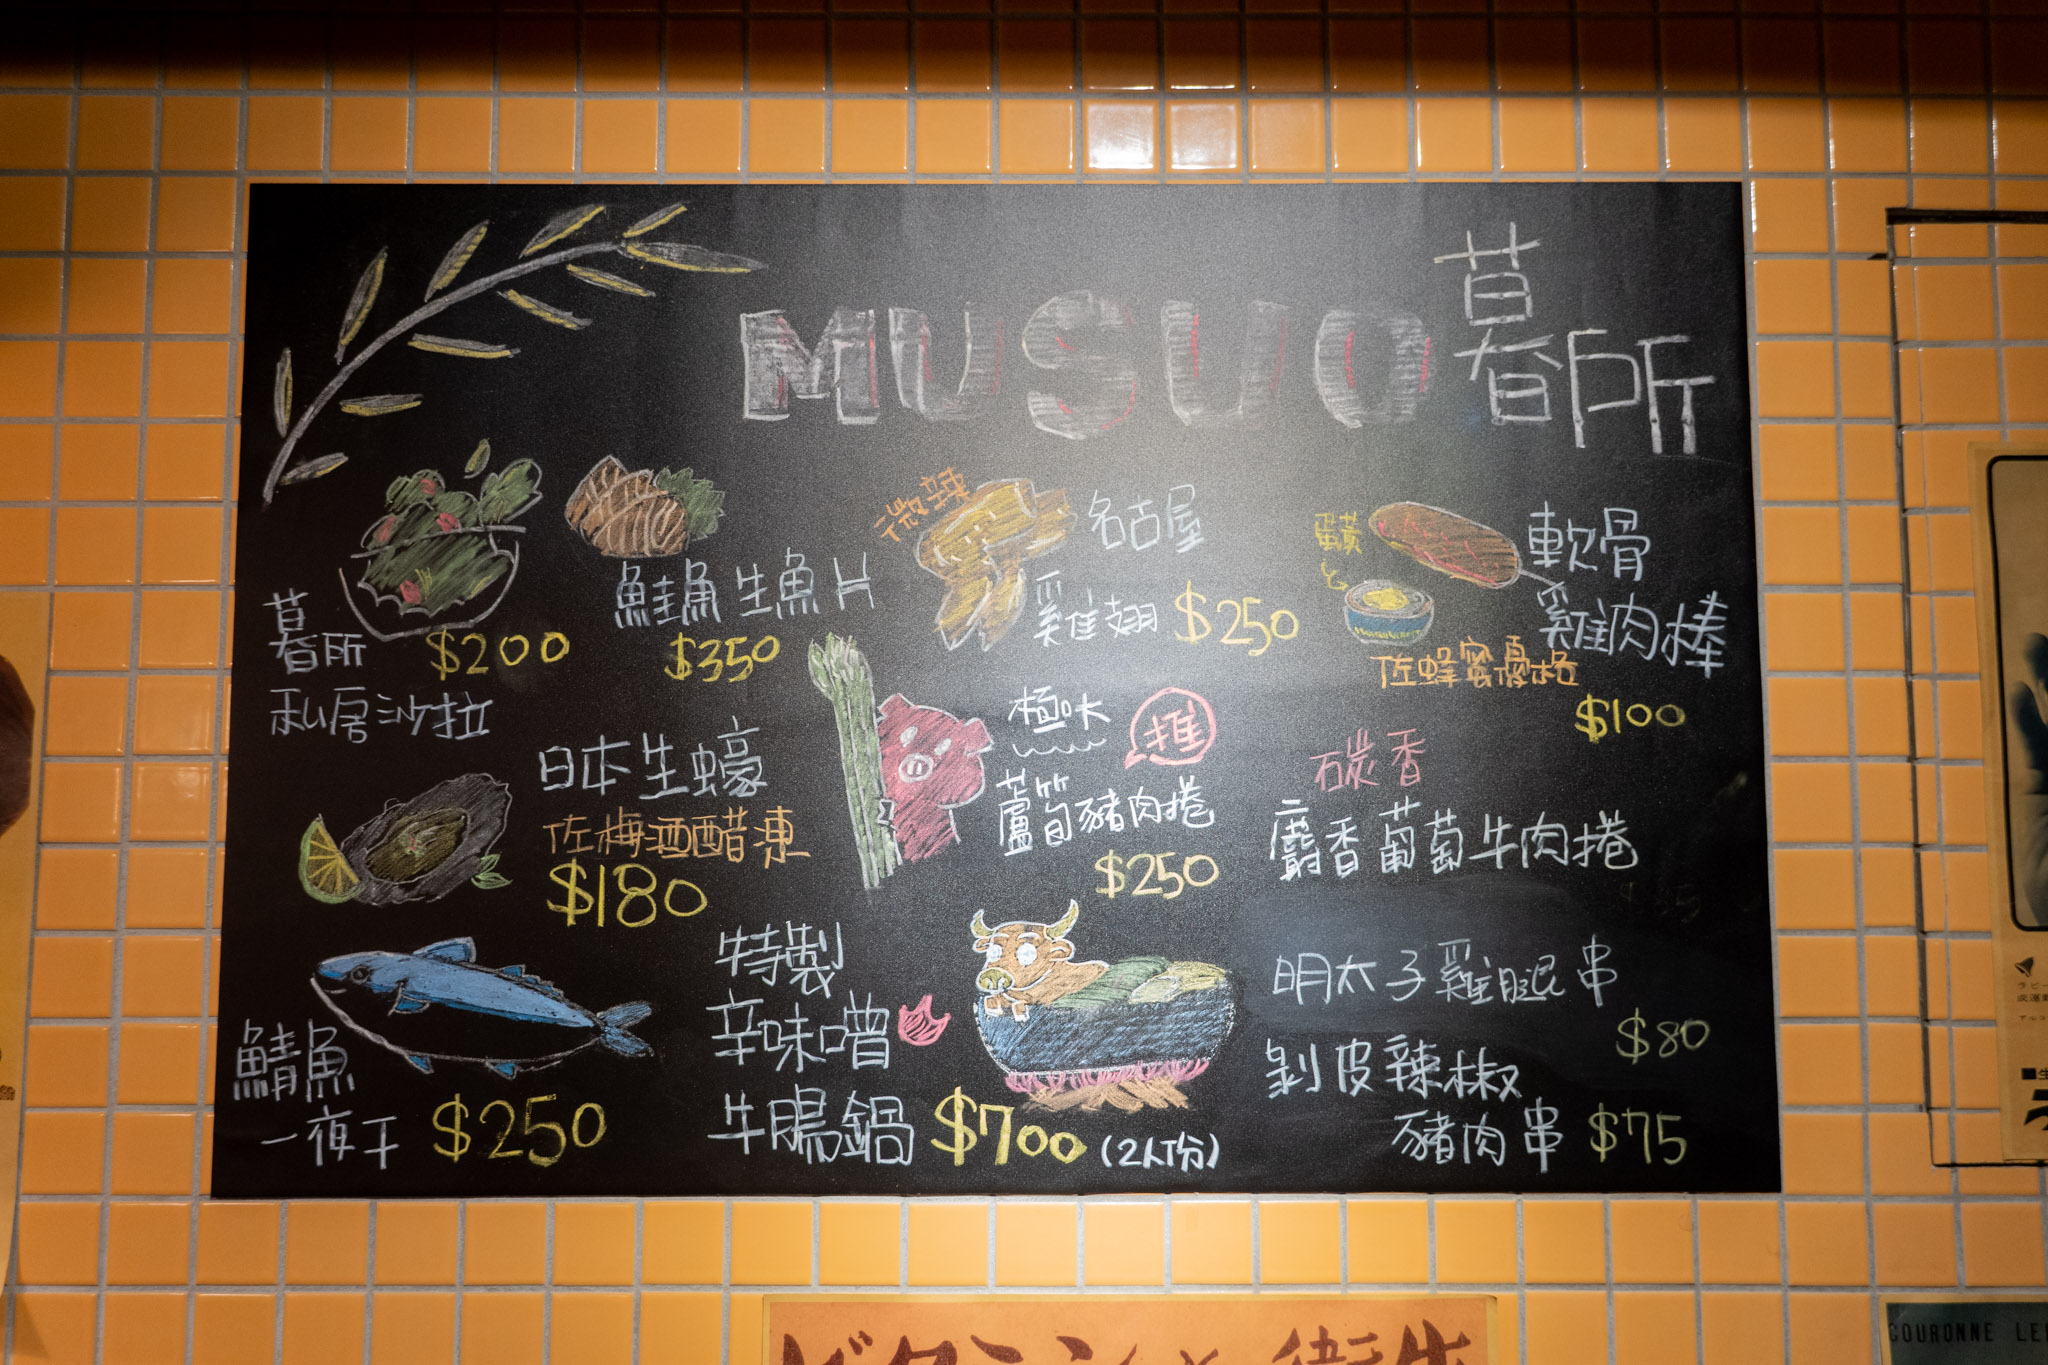 MUSUO 暮所
暮所
私房沙拉
$200
鮭魚生魚片
$350
微辣
名古屋
雞翅 $250
蛋黃
軟骨
雞肉棒
佐蜂蜜優格
$100
日本生蠔
佐梅酒醋凍
$180
極味
推
蘆筍豬肉捲
$250
碳香
麝香葡萄牛肉捲
鯖魚
一夜干 $250
特製
辛味噌
牛腸鍋 $700 (2人份)
明太子雞腿串
$80
剝皮辣椒
豬肉串 $75
COURONNE